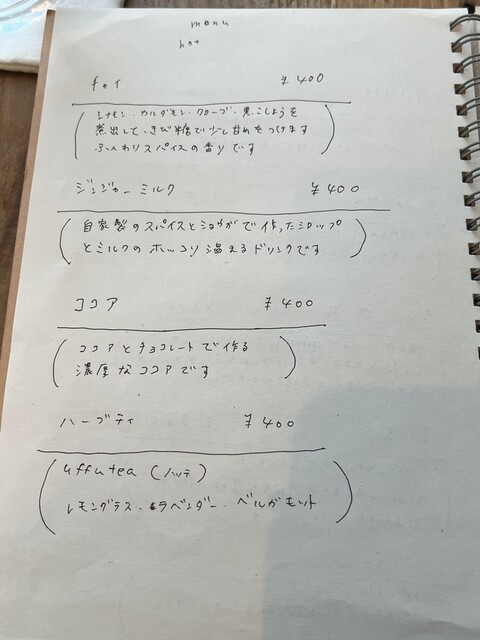 menu
hot
チャイ ¥400
(シナモン・カルダモン・クローブ・黒こしょうを
煮出して、きび糖で少し甘めをつけます
ふんわりスパイスの香りです)
ジンジャーミルク ¥400
(自家製のスパイスとショウガで作ったシロップ
とミルクのホッコリ温まるドリンクです)
ココア ¥400
(ココアとチョコレートで作る
濃厚なココアです)
ハーブティ ¥400
(uffutea
レモングラス・ラベンダー・ベルガモット)